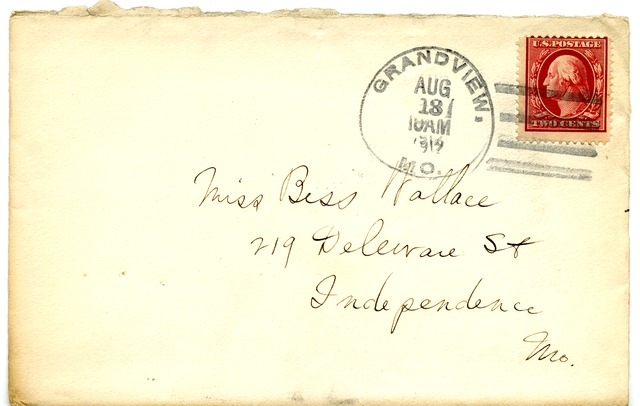 GRANDVIEW,
AUG
18
10AM
MO.
U.S. POSTAGE
TWO CENTS
Miss Bess Wallace
219 Deleware St
Independence
Mo.